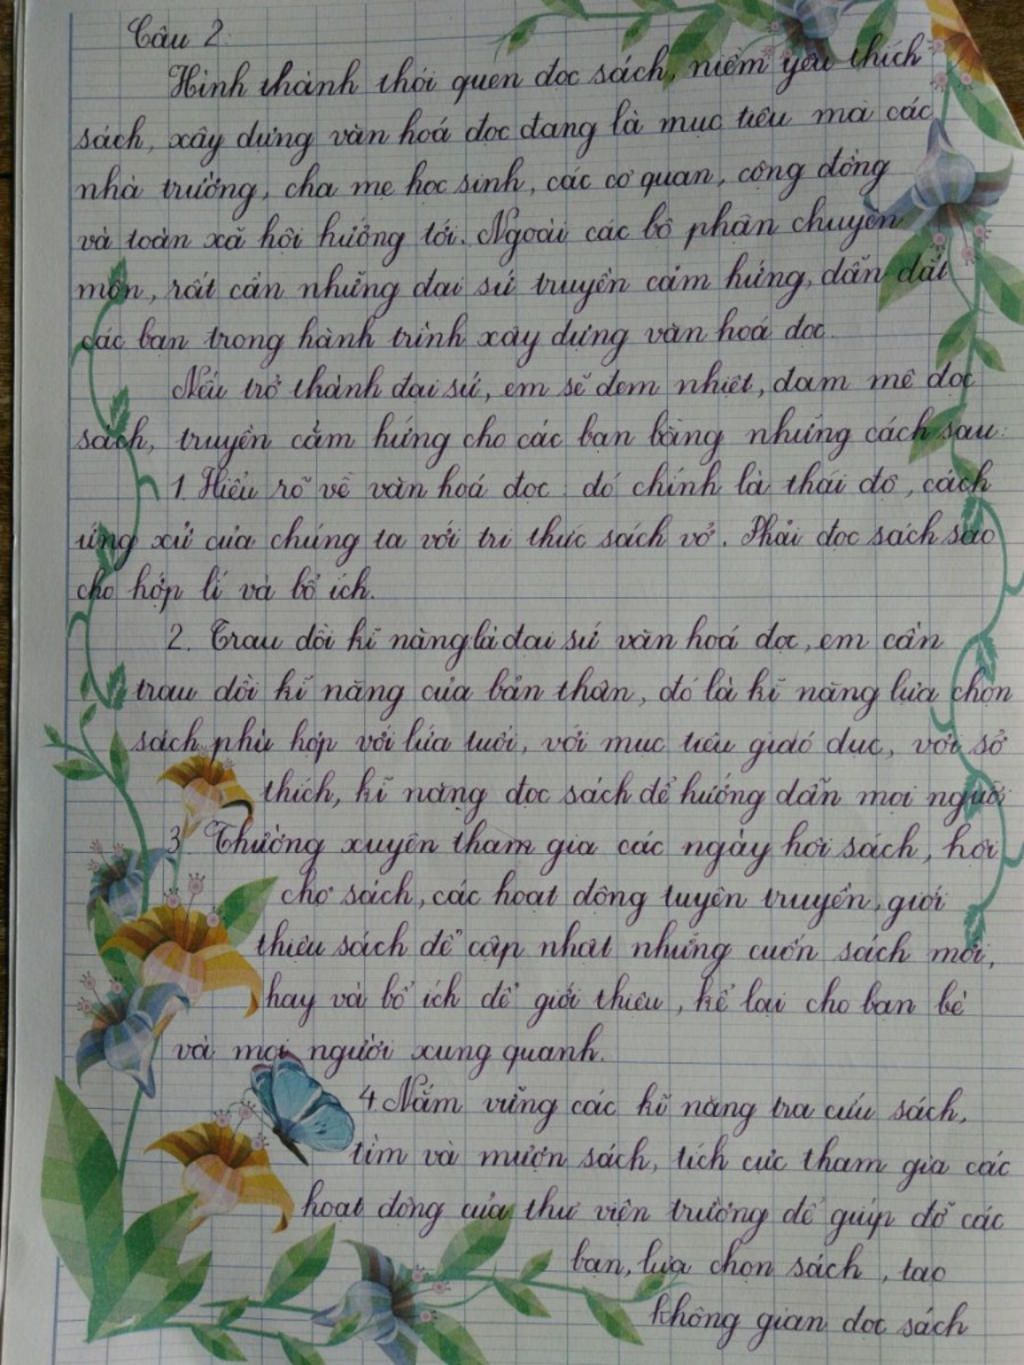 Câu 2:
Hình thành thói quen đọc sách, niềm yêu thích
sách, xây dựng văn hoá đọc đang là mục tiêu mà các
nhà trường, cha mẹ học sinh, các cơ quan, cộng đồng
và toàn xã hội hướng tới. Ngoài các bộ phận chuyên
môn, rất cần những đại sứ truyền cảm hứng, dẫn dắt
các bạn trong hành trình xây dựng văn hoá đọc.
Nếu trở thành đại sứ, em sẽ đem nhiệt, đam mê đọc
sách, truyền cảm hứng cho các bạn bằng những cách sau:
1. Hiểu rõ về văn hoá đọc: đó chính là thái độ, cách
ứng xử của chúng ta với tri thức sách vở. Phải đọc sách sao
cho hợp lí và bổ ích.
2. Trau dồi kĩ năng là đại sứ văn hoá đọc, em cần
trau dồi kĩ năng của bản thân, đó là kĩ năng lựa chọn
sách phù hợp với lứa tuổi, với mục tiêu giáo dục, với sở
thích, kĩ năng đọc sách để hướng dẫn mọi người
3. Thường xuyên tham gia các ngày hội sách, hội
chợ sách, các hoạt động tuyên truyền, giới
thiệu sách để cập nhật những cuốn sách mới,
hay và bổ ích để giới thiệu, kể lại cho bạn bè
và mọi người xung quanh.
4. Nắm vững các kĩ năng tra cứu sách,
tìm và mượn sách, tích cực tham gia các
hoạt động của thư viện trường để giúp đỡ các
bạn, lựa chọn sách, tạo
không gian đọc sách